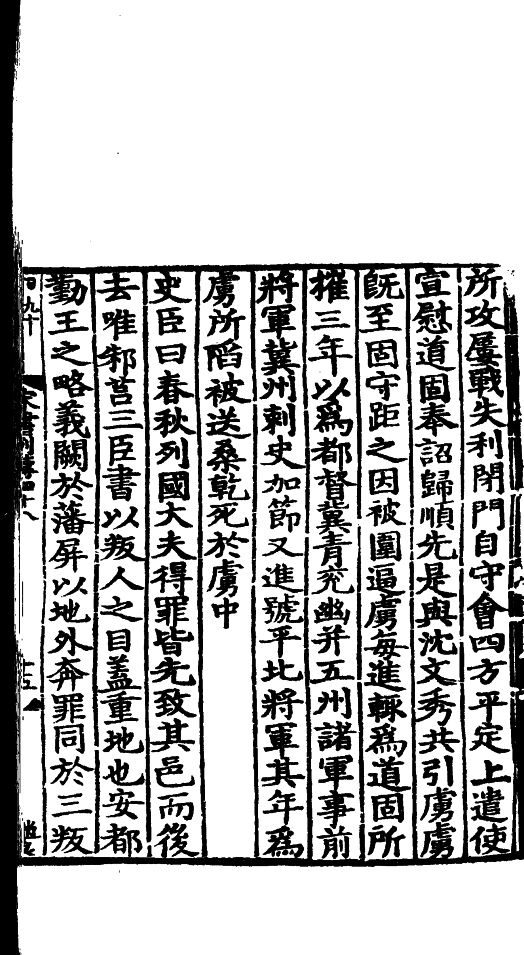 所攻屢戰失利閉門自守會四方平定上遣使
宣慰道固奉詔歸順先是與沈文秀共引虜虜
旣至固守距之因被圍逼虜每進輒爲道固所
摧三年以爲都督冀青兖幽并五州諸軍事前
將軍冀州刺史加節又進號平北將軍其年爲
虜所陷被送桑乾死於虜中
史臣曰春秋列國大夫得罪皆先致其邑而後
去唯邾莒三臣書以叛人之目蓋重地也安都
勤王之略義闕於藩屏以地外奔罪同於三叛